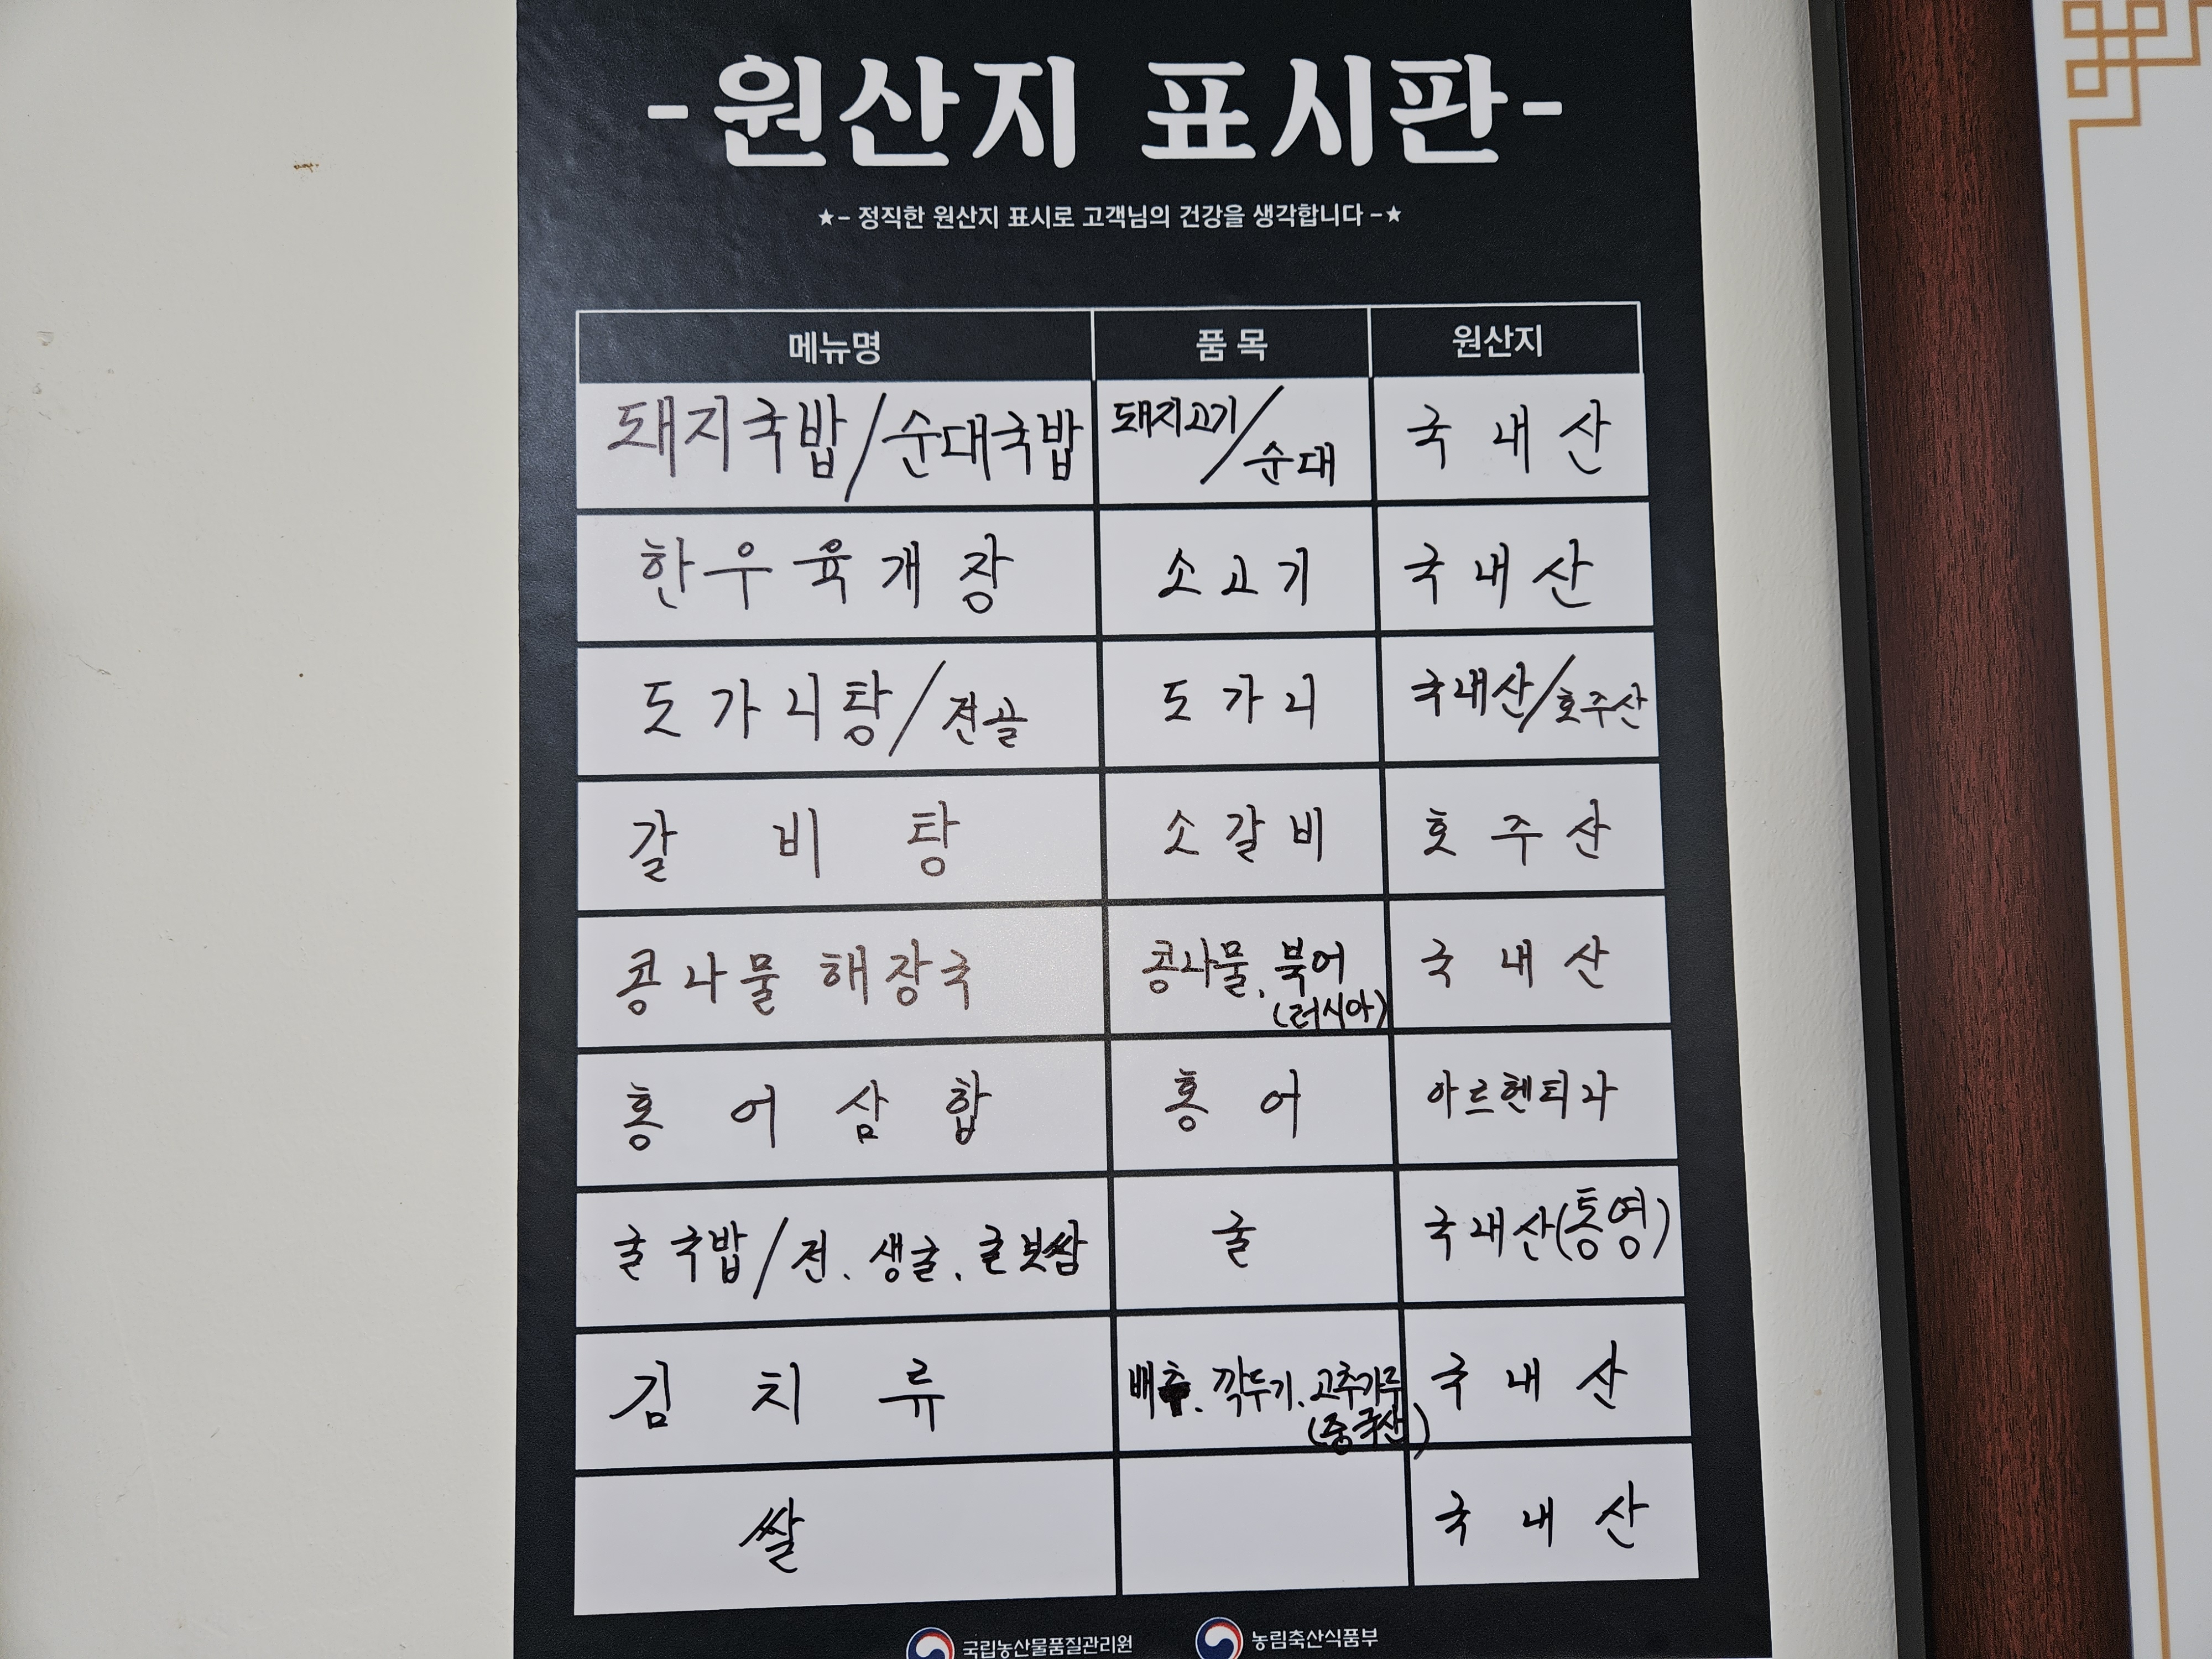 -원산지 표시판-
★- 정직한 원산지 표시로 고객님의 건강을 생각합니다 -★
메뉴명 품 목 원산지
돼지국밥/순대국밥 돼지고기/순대 국내산
한우육개장 소고기 국내산
도가니탕/전골 도가니 국내산/호주산
갈비탕 소갈비 호주산
콩나물 해장국 콩나물, 북어 국내산
(러시아)
홍어삼합 홍어 아르헨티나
굴국밥/전. 생굴. 굴보쌈 굴 국내산(통영)
김치류 배추. 깍두기. 고추가루 국내산
(중국산)
쌀 국내산
국립농산물품질관리원 농림축산식품부